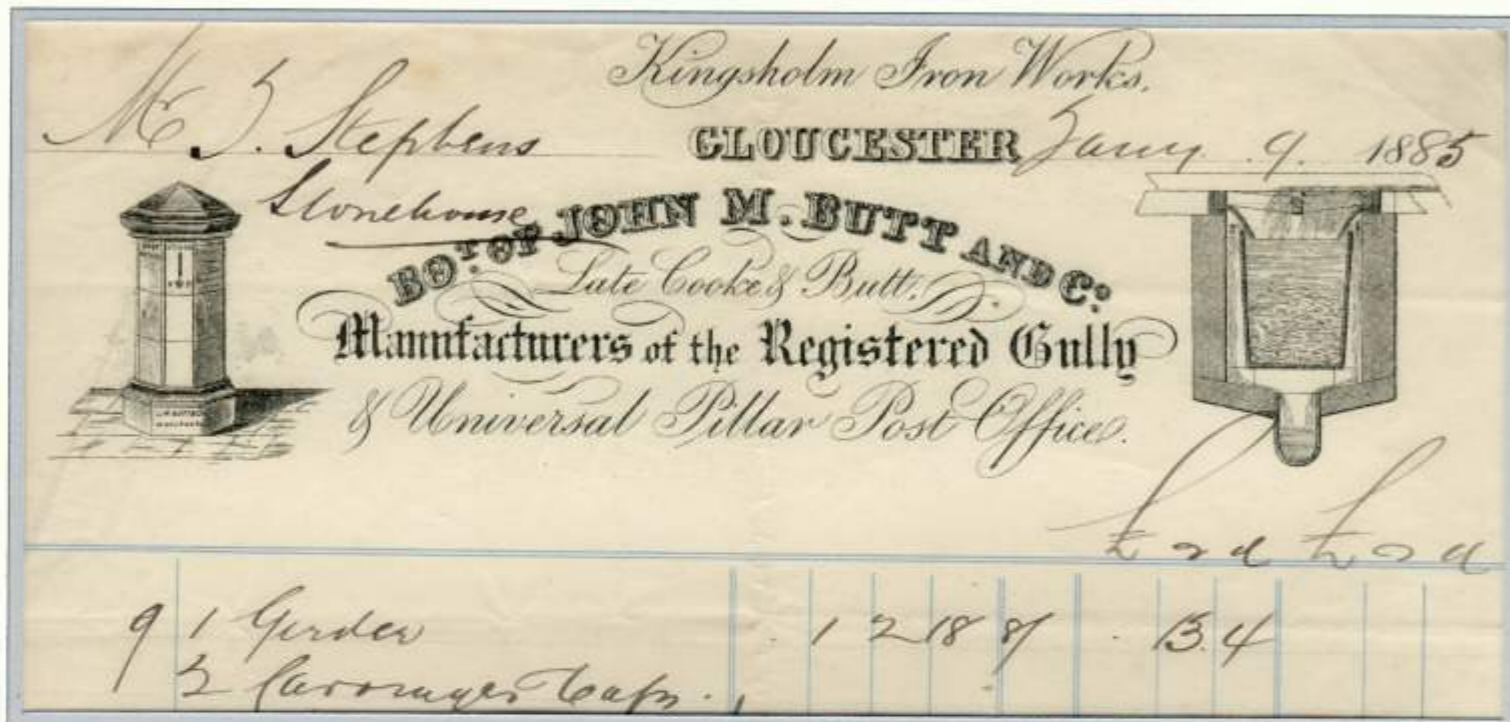 Kingsholm Iron Works.
Mr J. Stephens
GLOUCESTER Jany. 9. 1885
Stonehouse
BOT. OF JOHN M. BUTT AND Co.
Late Cooke & Butt.
Manufacturers of the Registered Gully
& Universal Pillar Post Office.
£ s d £ s d
9 1 Girder 1 2 18 8/ 13.4
2